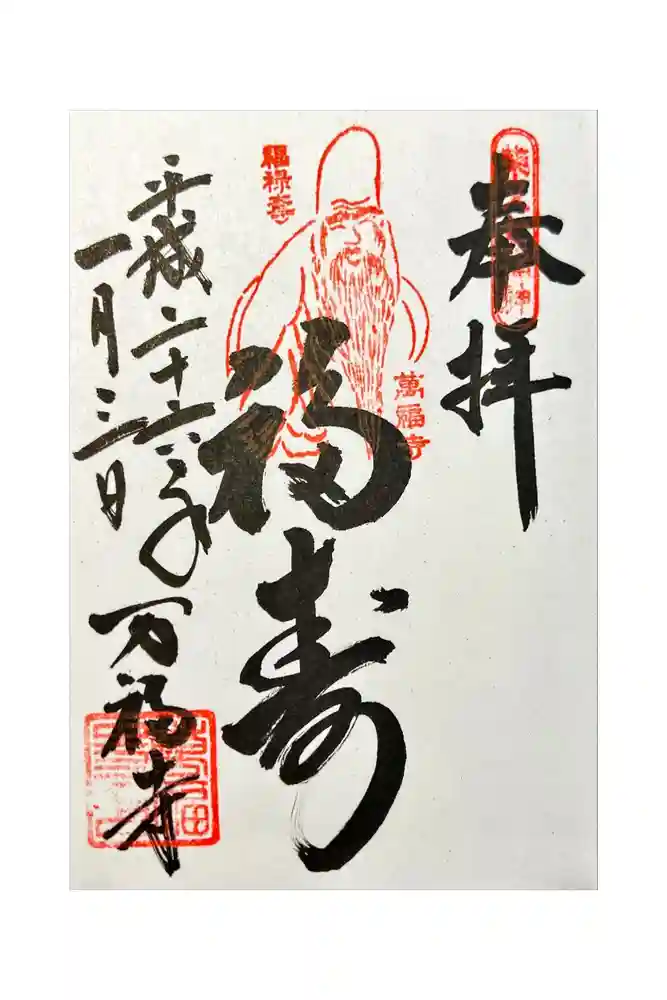 奉拝
福禄寿
萬福寺
福寿
平成二十六年
一月三日
万福寺